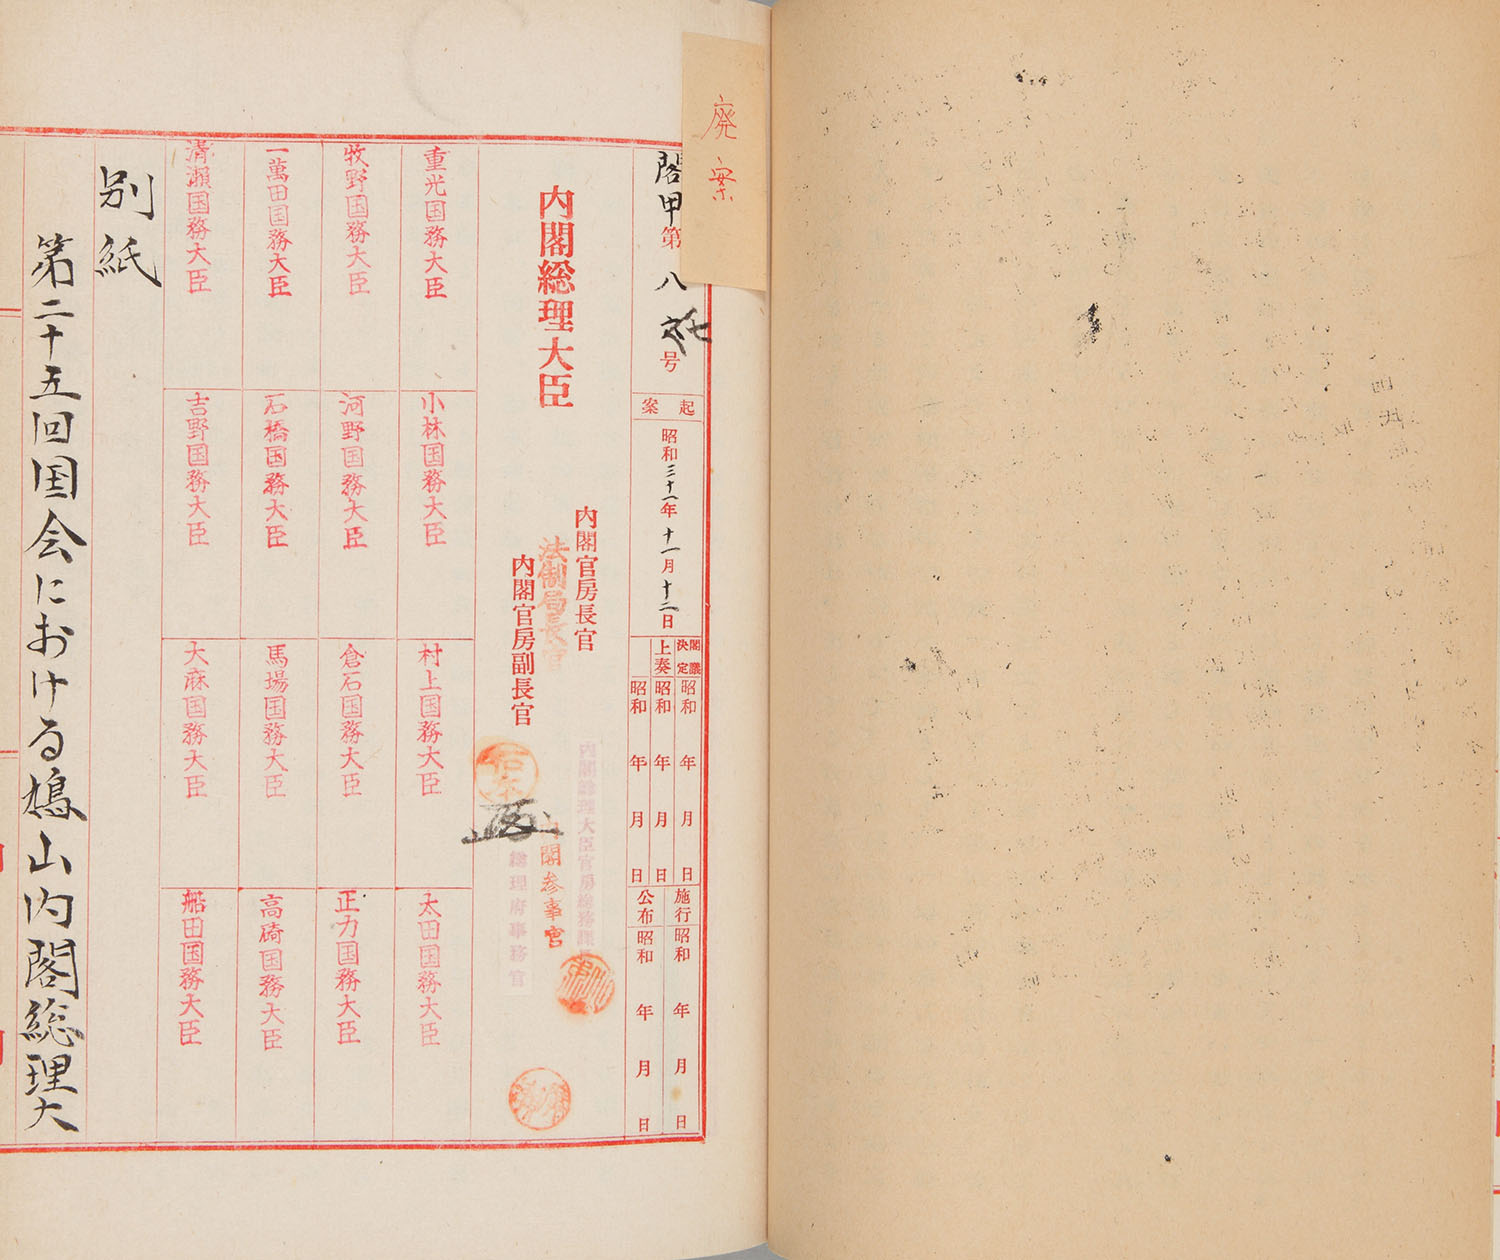 廃案
閣甲第八号
起案
昭和三十一年十一月十二日
閣議決定
昭和 年 月 日
上奏
昭和 年 月 日
昭和 年 月 日
施行
昭和 年 月 日
公布
昭和 年 月 日
内閣総理大臣
内閣官房長官
法制局長官
内閣官房副長官
内閣総理大臣官房総務課長
内閣参事官
総理府事務官
重光国務大臣
小林国務大臣
村上国務大臣
太田国務大臣
牧野国務大臣
河野国務大臣
倉石国務大臣
正力国務大臣
一萬田国務大臣
石橋国務大臣
馬場国務大臣
高碕国務大臣
清瀬国務大臣
吉野国務大臣
大麻国務大臣
船田国務大臣
別紙
第二十五回国会における鳩山内閣総理大